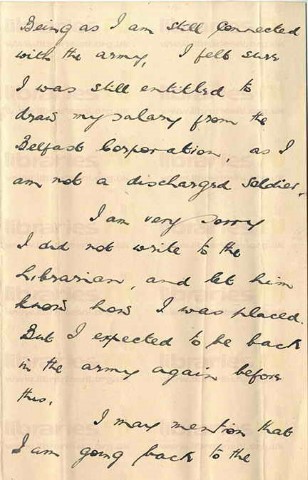 Being as I am still connected
with the army, I felt sure
I was still entitled to
draw my salary from the
Belfast Corporation, as I
am not a discharged soldier.
I am very sorry
I did not write to the
Librarian, and let him
know how I was placed.
But I expected to be back
in the army again before
this.
I may mention that
I am going back to the